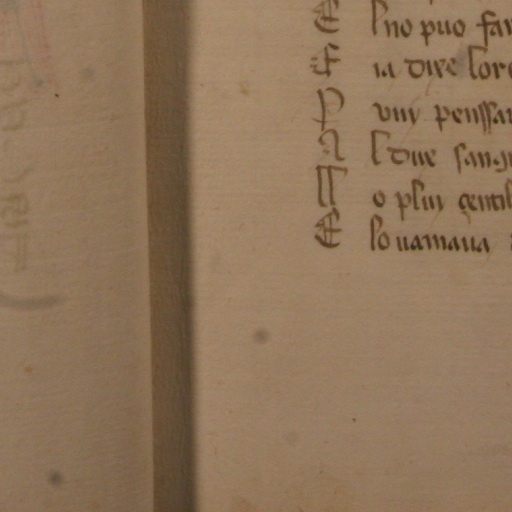 E l no puo far
E ia dire lor
P uni penssar
A l due san
N o plui gentil
E lo uamaua